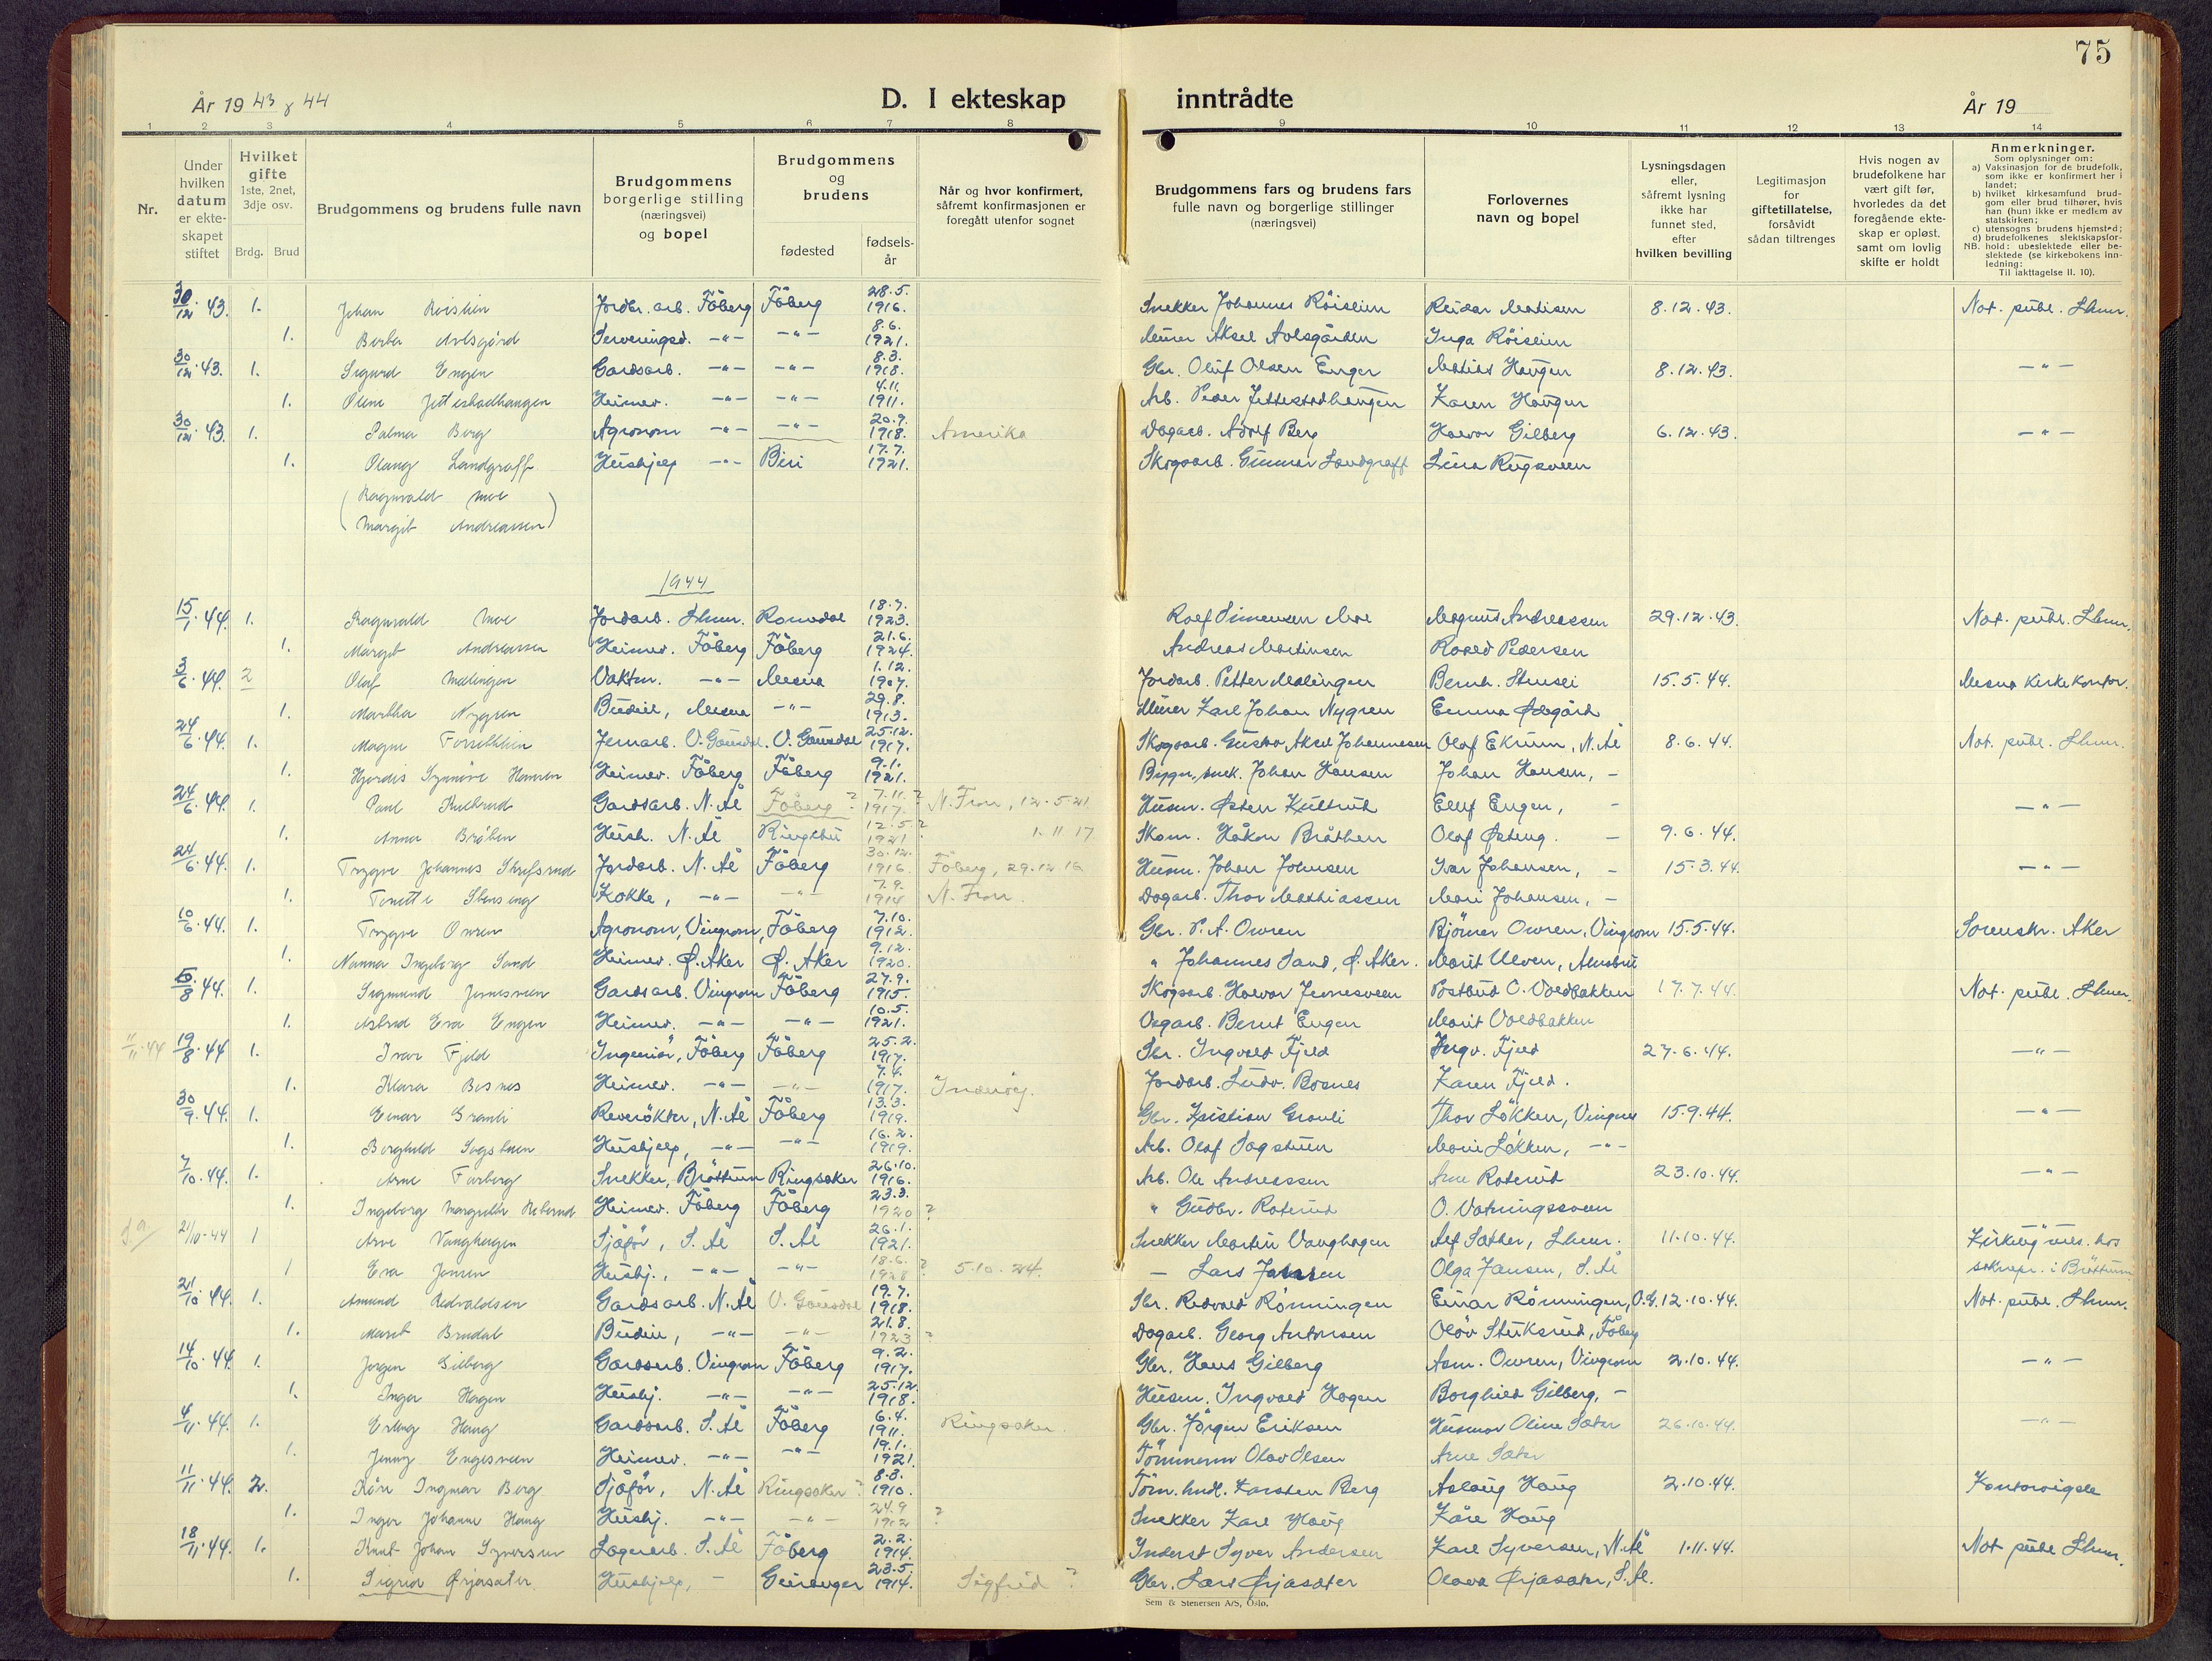 75
År 19 43 & 44
D. I ekteskap inntrådte
År 19
1 2 3 4 5 6 7 8 9 10 11 12 13 14
Nr.
Under hvilken datum er ekteskapet stiftet
Hvilket gifte 1ste, 2net, 3dje osv.
Brdg. Brud
Brudgommens og brudens fulle navn
Brudgommens borgerlige stilling (næringsvei) og bopel
Brudgommens og brudens
fødested
fødselsår
Når og hvor konfirmert, såfremt konfirmasjonen er foregått utenfor sognet
Brudgommens fars og brudens fars fulle navn og borgerlige stillinger (næringsvei)
Forlovernes navn og bopel
Lysningsdagen eller, såfremt lysning ikke har funnet sted, efter hvilken bevilling
Legitimasjon for giftetillatelse, forsåvidt sådan tiltrenges
Hvis nogen av brudefolkene har vært gift før, hvorledes da det foregående ekteskap er opløst, samt om lovlig skifte er holdt
Anmerkninger.
Som oplysninger om:
a) Vaksinasjon for de brudefolk, som ikke er konfirmert her i landet;
b) hvilket kirkesamfund brudgom eller brud tilhører, hvis han (hun) ikke er medlem av statskirken;
c) utensogns brudens hjemsted;
d) brudefolkenes slektskapsforhold: ubeslektede eller beslektede (se kirkebokens innledning:
NB.
Til iakttagelse II. 10).
30/12 43. 1. Johan Röislien Jordbr. arb. Fåberg Fåberg 28.5. 1916. Snekker Johannes Röislien Reidar Madisen 8.12.43. Not. publ. Lhmr.
1. Berta Avlsgård Serveringsd. -"- -"- 8.6. 1921. Murer Aksel Avlsgården Inga Röislien
30/12 43. 1. Sigurd Engen Gardsarb. -"- -"- 8.3. 1918. Gbr. Oluf Olsen Engen Matias Haugen 8.12.43. -"-
1. Olene Jettestadhaugen Heimev. -"- -"- 4.11. 1911. Arb. Peder Jettestadhaugen Karen Haugen
30/12 43. 1. Palmar Berg Agronom -"- -"- 20.9. 1918. Amerika Dagarb. Adolf Berg Halvor Gilberg 6.12.43. -"-
1. Olaug Landgraff Hushjelp -"- Biri 17.7. 1921. Skogsarb. Gunnar Landgraff Lina Rugsveen
(Ragnvald Moe
Margit Andreassen)
1944
15/1 44. 1. Ragnvald Moe Jordarb. Lhmr. Romedal 18.7. 1923. Rolf Simensen Moe Magnus Andreassen 29.12.43. Not. publ. Lhmr.
1. Margit Andreassen Heimev. Fåberg Fåberg 21.6. 1924. Andreas Martinsen Rosed Pedersen
3/6 44. 2 Olaf Mælingen Vaktm. -"- Mesna 1.12. 1907. Jordarb. Petter Mælingen Bernh. Stensli 15.5.44. Mesna Kirkekontor.
1. Martha Nygren Budeie, Mesna -"- 29.8. 1913. Murer Karl Johan Nygren Emma Ødegård
24/6 44. 1. Magne Jernarb. V. Gausdal. V. Gausdal 25.12. 1917. Skogsarb. Gustav Aksel Johannesen Olaf Ekrum, N. Ål 8.6.44. Not. publ. Lhmr.
1. Hjørdis Synnöve Hansen Heimev. Fåberg Fåberg 9.1. 1921. Bygn. snek. Johan Hansen Johan Hansen, -
24/6 44. 1. Paul Kultrud Gardsarb. N. Ål Fåberg ? 7.11. ? 1917. N. Fron, 12.5.21 Husm. Østen Kultrud Elluf Engen, - -"-
1. Anna Bråten Hush. N. Ål Ringebu 12.5 ? 1921 1.11.17 Skom. Håkon Bråthen Olaf Østeng. - 9.6.44.
24/6 44. 1. Trygve Johannes Skrefsrud Jordarb. N. Ål Fåberg 30.12. 1916. Fåberg, 29.12.16 Husm. Johan Johnsen Ivar Johansen, - 15.3.44. -"-
1. Tinette Stenseng Kokke, -"- -"- 7.9. 1914 N. Fron. Dagarb. Thor Mathiassen Mari Johansen, -
10/6 44. 1. Trygve Owren Agronom, Vingrom, Fåberg 7.10. 1912. Gbr. P. A. Owren Björner Owren, Vingrom 15.5.44. Sorenskr. Aker
1. Nanna Ingeborg Sand Heimev. Ø. Aker Ø. Aker 9.12. 1920. " Johannes Sand, Ø. Aker. Marit Ulven, Alnabru
5/8 44. 1. Sigmund Jemesveen Gardsarb. Vingrom Fåberg 27.9. 1915. Skogsarb. Halvor Jemesveen Postbud O. Voldbakken 17.7.44. Not. publ. Lhmr.
1. Astrid Eva Engen Heimev. -"- -"- 10.5. 1921. Dagarb. Bernt Engen Marit Voldbakken
11/11 44 19/8 44 1. Ivar Fjeld Ingeniör, Fåberg Fåberg 25.2. 1917. Gbr. Ingvald Fjeld Ingv. Fjeld 27.6.44. -"-
1. Klara Bosnes Heimev. -"- -"- 7.4. 1917. Inderöy. Jordarb. Ludv. Bosnes Karen Fjeld.
30/9 44. 1. Einar Granli Reverökter, N. Ål Fåberg 13.3. 1919. Gbr. Kristian Granli Thor Løkken, Vingnes 15.9.44. -"-
1. Borghild Sagstuen Hushjelp, -"- -"- 16.2. 1919. Arb. Olaf Sagstuen Mari Løkken, -"-
7/10 44. 1. Arne Furberg Snekker, Bröttum Ringsaker 26.10. 1916. Arb. Ole Andreassen Arne Roterud 23.10.44. -"-
1. Ingeborg Margrethe Roterud Heimev. Fåberg Fåberg 23.3. 1920 ? " Gudbr. Roterud O. Vatningssveen
21/10-44 1 Arve Vanghagen Sjåför, S. Ål S. Ål 26.1. 1921. Snekker Martin Vanghagen Alf Sæther, Lhmr. 11.10.44. Kirkelig vies. hos
1 Eva Jensen Hushj., -"- -"- 18.6. 1928 ? 5.10.24. - Lars Jansen Olga Jansen, S. Ål sokнepr. i Bröttum
21/10 44. 1. Amund Redvaldsen Gardsarb. N. Ål V. Gausdal 19.7. 1918. Gbr. Redvald Rønningen Einar Rønningen, Ö.G. 12.10.44. Not. publ. Lhmr.
1. Marit Brudal Budeie, -"- -"- 21.8. 1923 ? Dagarb. Georg Antonsen Olöv Stuksrud, Fåberg
14/10 44. 1. Jørgen Gilberg Gardsarb. Vingrom Fåberg 9.2. 1917. Gbr. Hans Gilberg Asm. Owren, Vingrom 2.10.44. -"-
1. Inger Hagen Hushj. -"- -"- 25.12. 1918. Husm. Ingvald Hagen Borghild Gilberg, -
4/11 44. 1. Erling Haug Gardsarb. S. Ål Fåberg 6.4. 1911. Ringsaker. Gbr. Jörgen Eriksen Husmor Oline Sæter 26.10.44. -"-
1. Jenny Engesveen Heimev. -"- -"- 19.1. 1921. Tömmerm Olav Olsen Arne Sæter
11/11 44. 2. Kåre Ingmar Berg Sjåför, N. Ål Ringsaker ? 8.8. 1910. Töm. hndl. Karsten Berg Aslaug Haug 2.10.44. Kontorvigsle
1. Inger Johanne Haug Hushj. -"- -"- 24.9 1912 ? Snekker Karl Haug Kåre Haug
18/11 44. 1. Knut Johan Syversen Lagerarb. S. Ål Fåberg 2.2. 1914. Inderst Syver Andersen Karl Syversen, N. Ål 1.11.44. Not publ Lhmr.
1. Sigrid Ørjasæter Hushjelp, - Geiranger 23.5. 1914. Sigfrid ? Gbr. Lars Ørjasæter Olava Ørjasæter, S. Ål.
Sem & Stenersen A/S, Oslo.